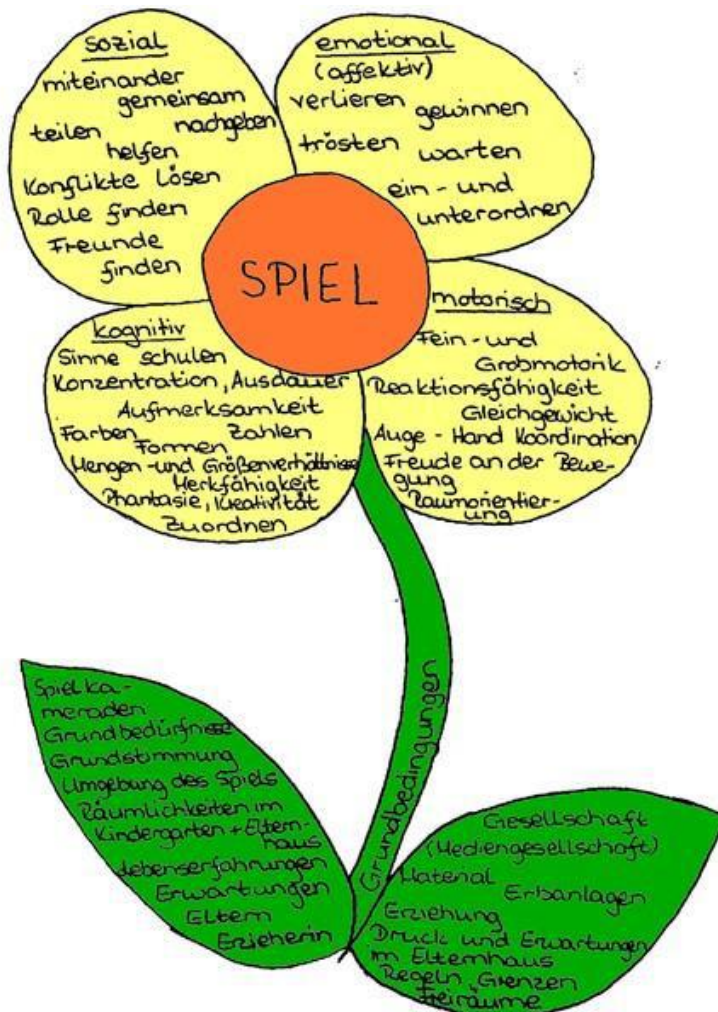 sozial
miteinander
gemeinsam
teilen nachgeben
helfen
Konflikte lösen
Rolle finden
Freunde
finden
emotional
(affektiv)
verlieren
gewinnen
trösten warten
ein- und
unterordnen
SPIEL
kognitiv
Sinne schulen
Konzentration, Ausdauer
Aufmerksamkeit
Farben Zahlen
Formen
Mengen- und Größenverhältnisse
Merkfähigkeit
Phantasie, Kreativität
Zuordnen
motorisch
Fein- und
Grobmotorik
Reaktionsfähigkeit
Gleichgewicht
Auge-Hand Koordination
Freude an der Bewe-
gung
Raumorientier-
ung
Grundbedingungen
Spielka-
meraden
Grundbedürfnisse
Grundstimmung
Umgebung des Spiels
Räumlichkeiten im
Kindergarten + Eltern-
haus
Lebenserfahrungen
Erwartungen
Eltern
Erzieherin
Gesellschaft
(Mediengesellschaft)
Material
Erbanlagen
Erziehung
Druck und Erwartungen
im Elternhaus
Regeln, Grenzen
Freiräume